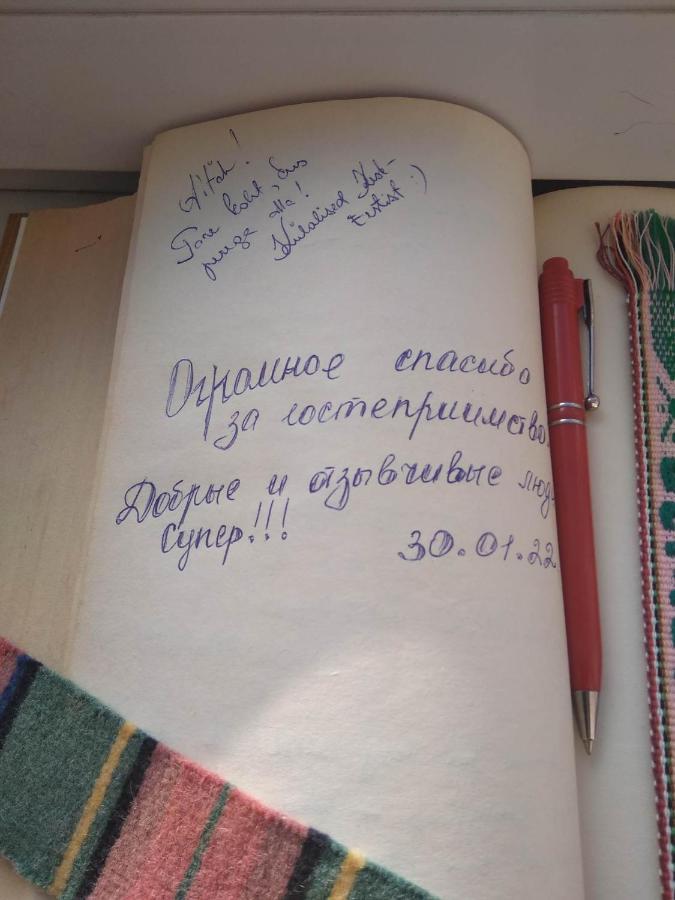 Aitäh!
Tore koht, kus
olla!
Külalised Kesk-
Eestist :)
Огромное спасибо
за гостеприимство.
Добрые и отзывчивые люд
супер!!!
30.01.22